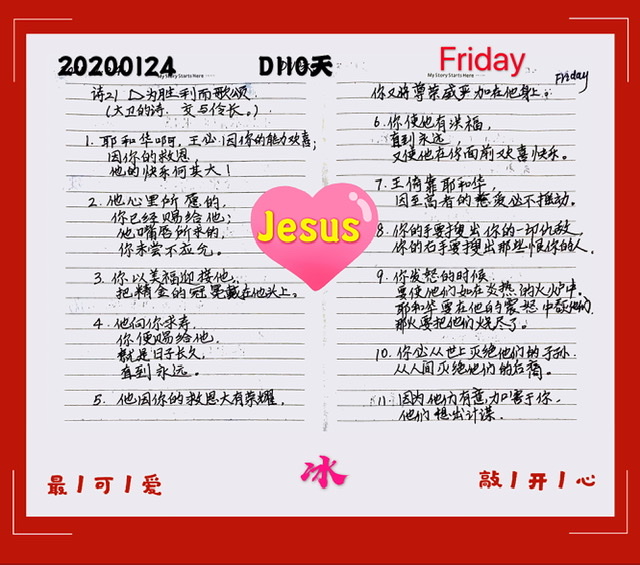 20200124 D110天
Friday
My Story Starts Here
诗21 为胜利而歌颂
(大卫的诗．交与伶长。)
1. 耶和华啊，王必因你的能力欢喜；
因你的救恩，
他的快乐何其大！
2. 他心里所愿的，
你已经赐给他；
他嘴唇所求的，
你未尝不应允。
3. 你以美福迎接他，
把精金的冠冕戴在他头上。
4. 他向你求寿，
你便赐给他，
就是日子长久，
直到永远。
5. 他因你的救恩大有荣耀，
My Story Starts Here
Friday
你又将尊荣威严加在他身上。
6. 你使他有洪福，
直到永远，
又使他在你面前欢喜快乐。
7. 王倚靠耶和华，
因至高者的慈爱必不摇动。
8. 你的手要搜出你的一切仇敌，
你的右手要搜出那些恨你的人。
9. 你发怒的时候，
要使他们如在炎热的火炉中．
耶和华要在他的震怒中吞灭他们
那火要把他们烧尽了。
10. 你必从世上灭绝他们的子孙
从人间灭绝他们的后裔。
11. 因为他们有意加害于你，
他们想出计谋．
Jesus
冰
最丨可丨爱
敲丨开丨心